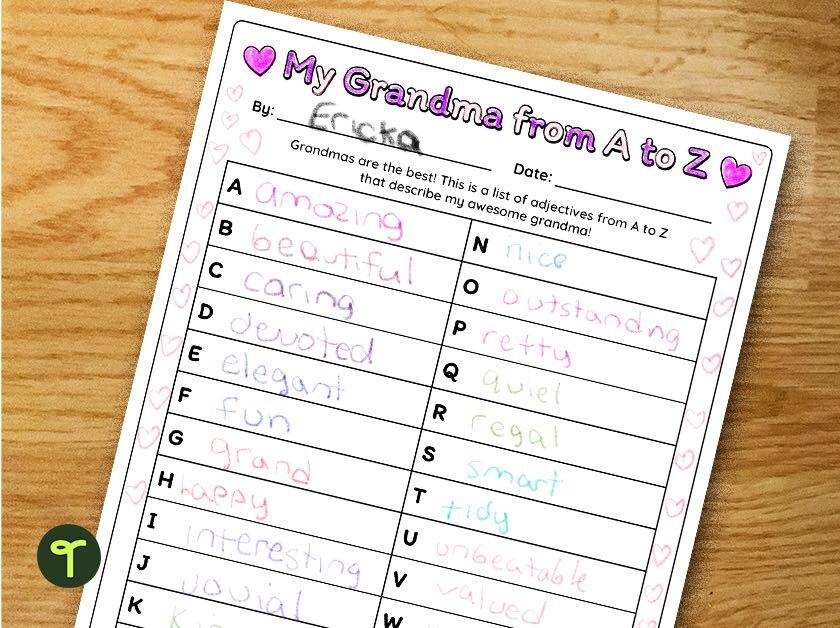 My Grandma from A to Z
By: Ericka
Date:
Grandmas are the best! This is a list of adjectives from A to Z
that describe my awesome grandma!
A amazing
B beautiful
C caring
D devoted
E elegant
F fun
G grand
H happy
I interesting
J jovial
K
N nice
O outstandng
P retty
Q quiet
R regal
S smart
T tidy
U unbeatable
V valued
W